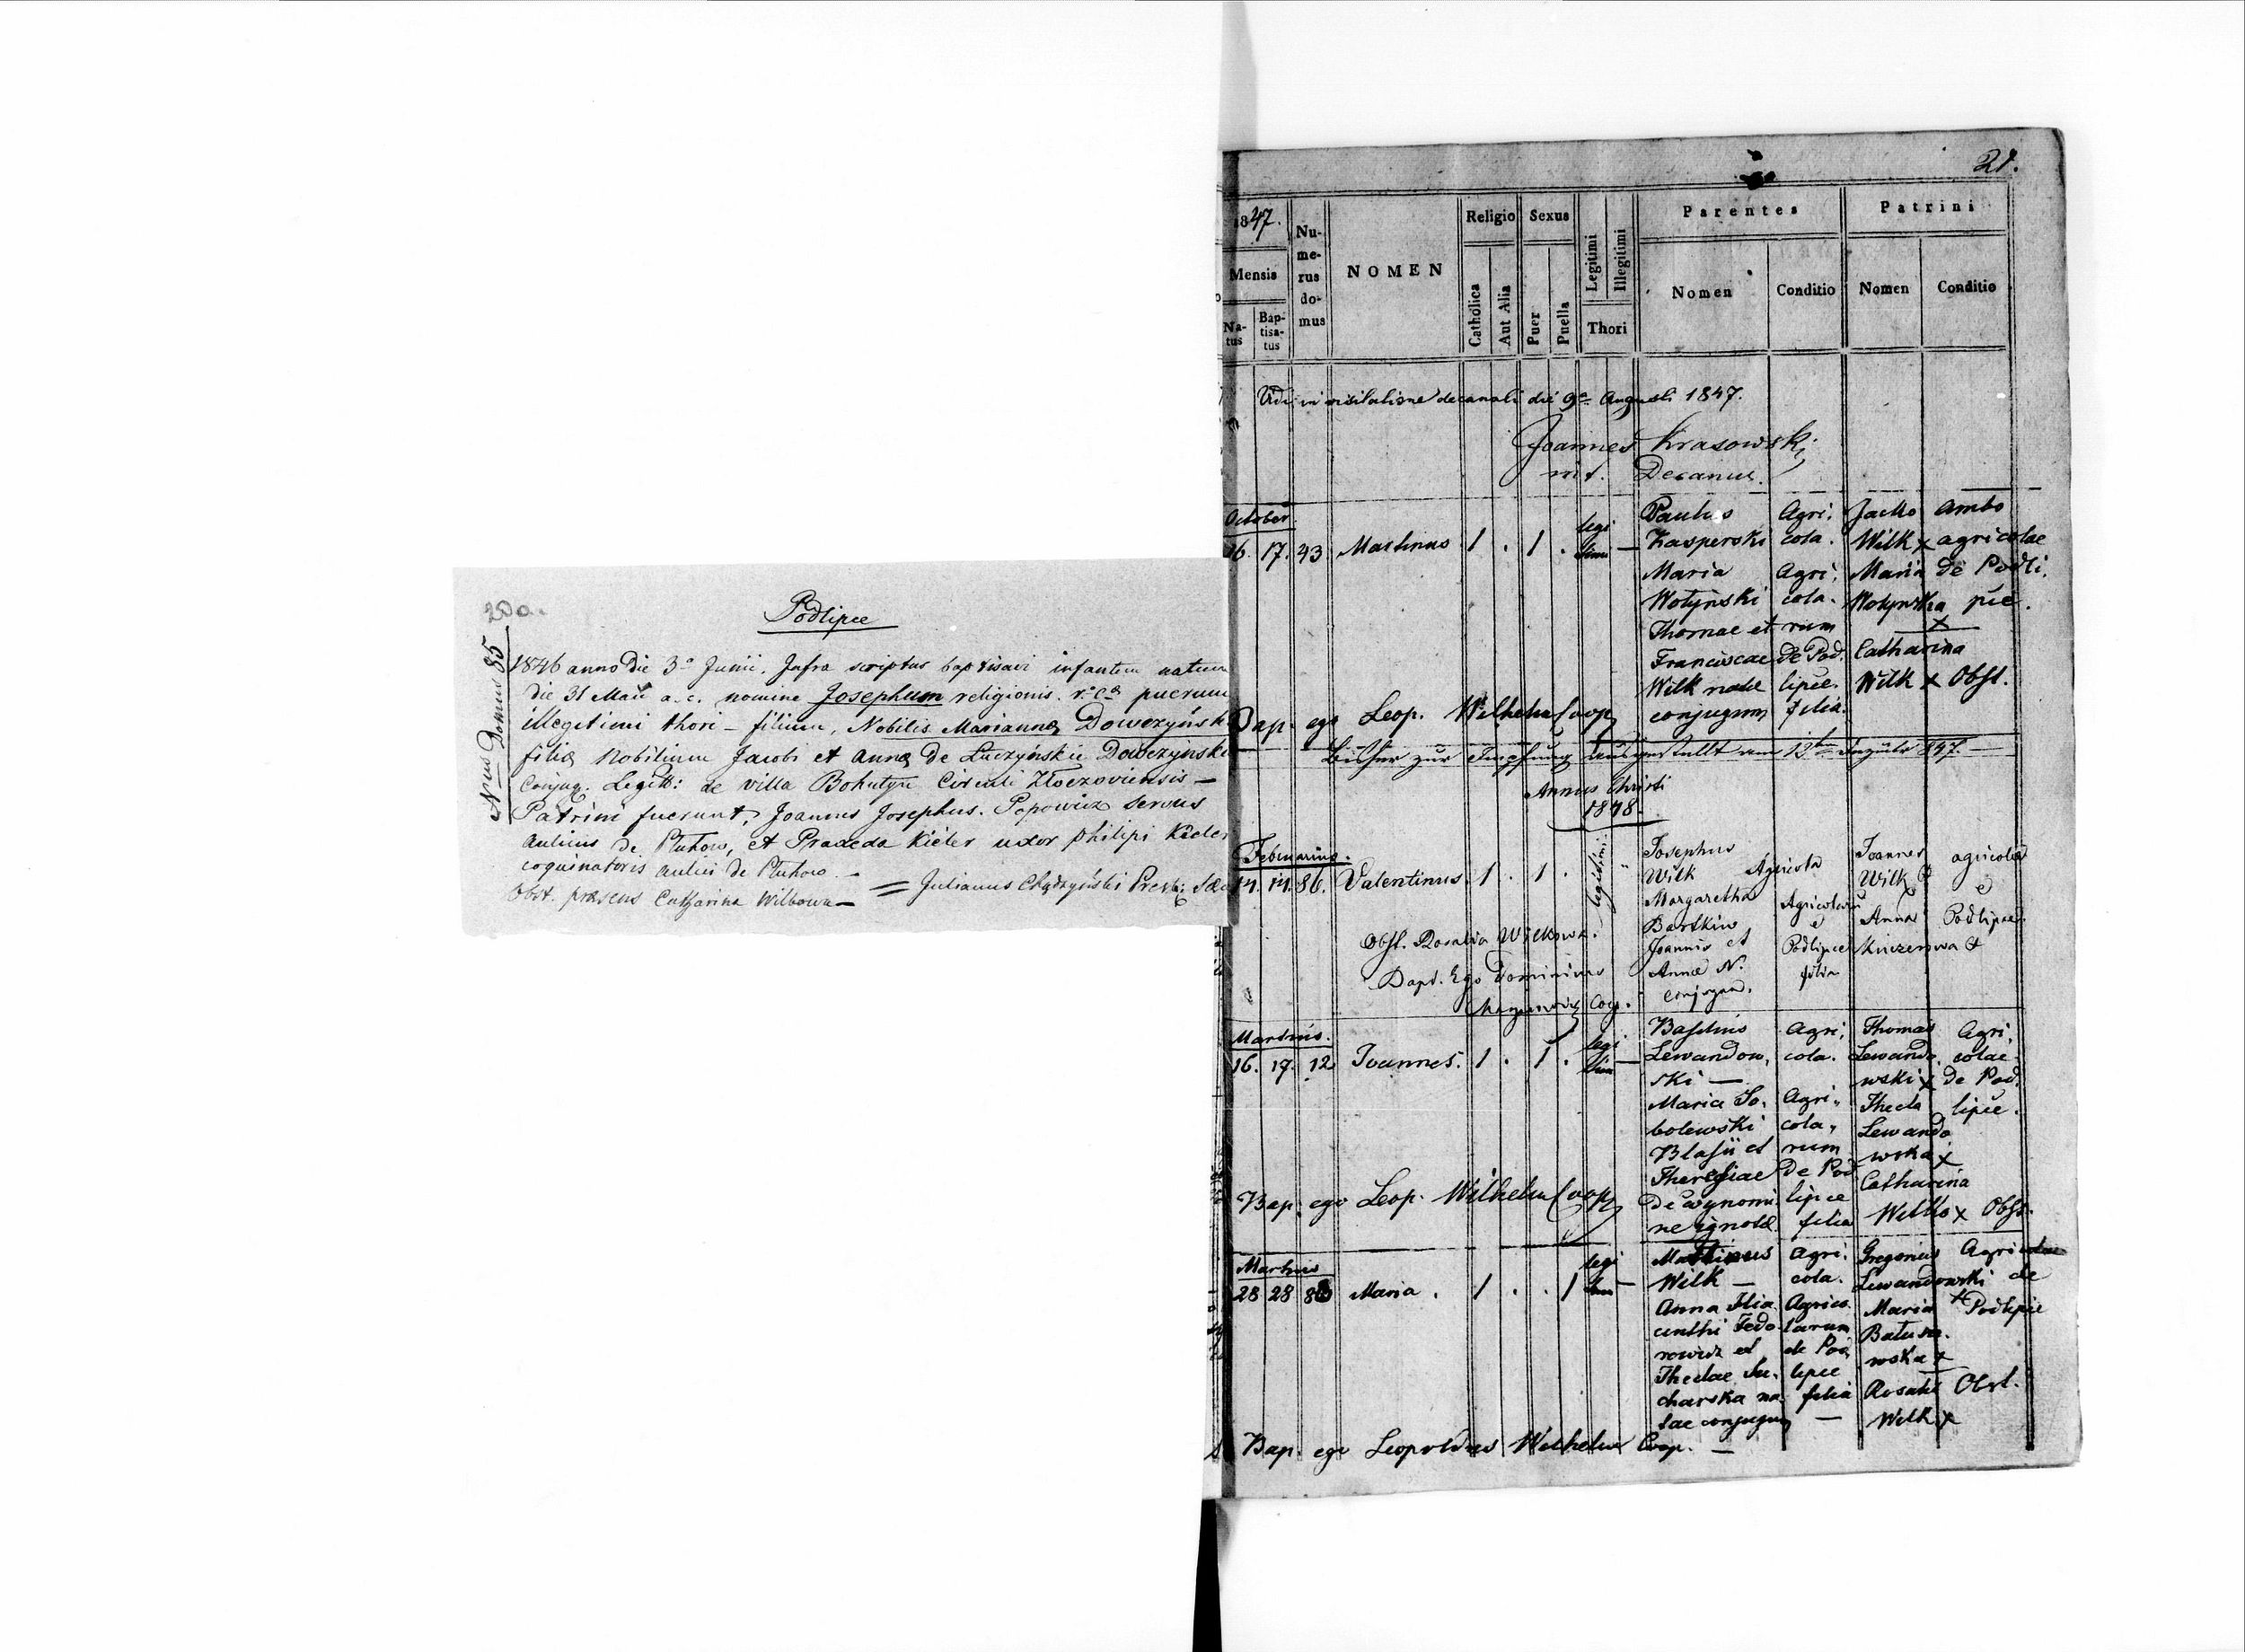 20a.
Podlipce
Nrus Domus 85
1846 anno die 3a Junii. Jnfra scriptus baptisavi infantem natum
die 31 Maii a. c. nomine Josephum religionis r. c. puerum
illegitimi thori – filium, Nobilis Mariannæ Dowczyńsk
filiæ Nobilium Jacobi et Annæ de Łuczyńskie Dowczyński
Conjug. Legitt: de villa Bohutyn Circuli Złoczoviensis —
Patrini fuerunt, Joannes Josephus Popowicz Servus
Aulicus de Pluhow, et Praxeda Kieler uxor Philipi Kieler
coquinatoris aulici de Pluhow. —
Obst. præsens Catharina Wilkowa — = Julianus Chądzyński Presb:
21.
1847.
Mensis
Na-
tus
Bap-
tisa-
tus
Nu-
me-
rus
do-
mus
NOMEN
Religio
Catholica
Aut Alia
Sexus
Puer
Puella
Legitimi
Illegitimi
Thori
Parentes
Nomen
Conditio
Patrini
Nomen
Conditio
Vidi in visitatione decanali die 9a Augusti 1847.
Joannes Krasowski
Decanus.
October
16. 17. 43 Martinus 1 . 1 . legi
timi —
Paulus
Kasperski
Maria
Wołyński
Thomae et
Franciscae
Wilk natae
conjugum
Agri,
cola.
Agri,
cola.
rum
de Pod.
lipce.
filia.
Jacko
Wilk x
Maria
Wołynska
x
Catharina
Wilk x Obst.
ambo
agricolae
de Podli,
pce.
Bap. ego Leop. Wilhelm Coop
Annus Christi
1848.
Februarius.
14. 14. 86. Valentinus. 1 . 1 . legitimi "
Josephus
Wilk
Margaretha
Bartkiw
Joannis et
Annæ N.
conjugum.
Agricola
Agricolarum
e
Podlipce
filia
Joannes
Wilk
x
Anna
agricolæ
e
Podlipce.
Obst. Rosalia Wilkowa.
Bapt. Ego Dominicus
Coop.
Martius.
16. 17. 12 Joannes. 1 . 1 . legi
timi —
Basilius
Lewandow,
ski —
Maria So,
bolewski
Blasii et
Theresiae
de cognomi,
ne ignotæ
Agri,
cola.
Agri,,
cola,,
rum
de Pod
lipce
filia
Thomas
Lewando,
wski x
Thecla
Lewando
wska x
Catharina
Wilko x Obst.
Agri,
colae
de Pod,
lipce.
Bap. ego Leop. Wilhelm Coop
Martius
28 28 Maria . 1 . . 1 legi
timi —
Wilk —
Anna Hia
cinthi Fedo
rowicz et
Theclae Su,
charska na,
tae conjugum
Agri.
cola.
Agrico.
larum
de Pod,
lipce
filia
—
Gregorius
Lewandowski
Maria
wska x
Rosalis
Wilk x
de
Podlipce
Obst.
Bap. ego Leopoldus Wilhelm Coop. —